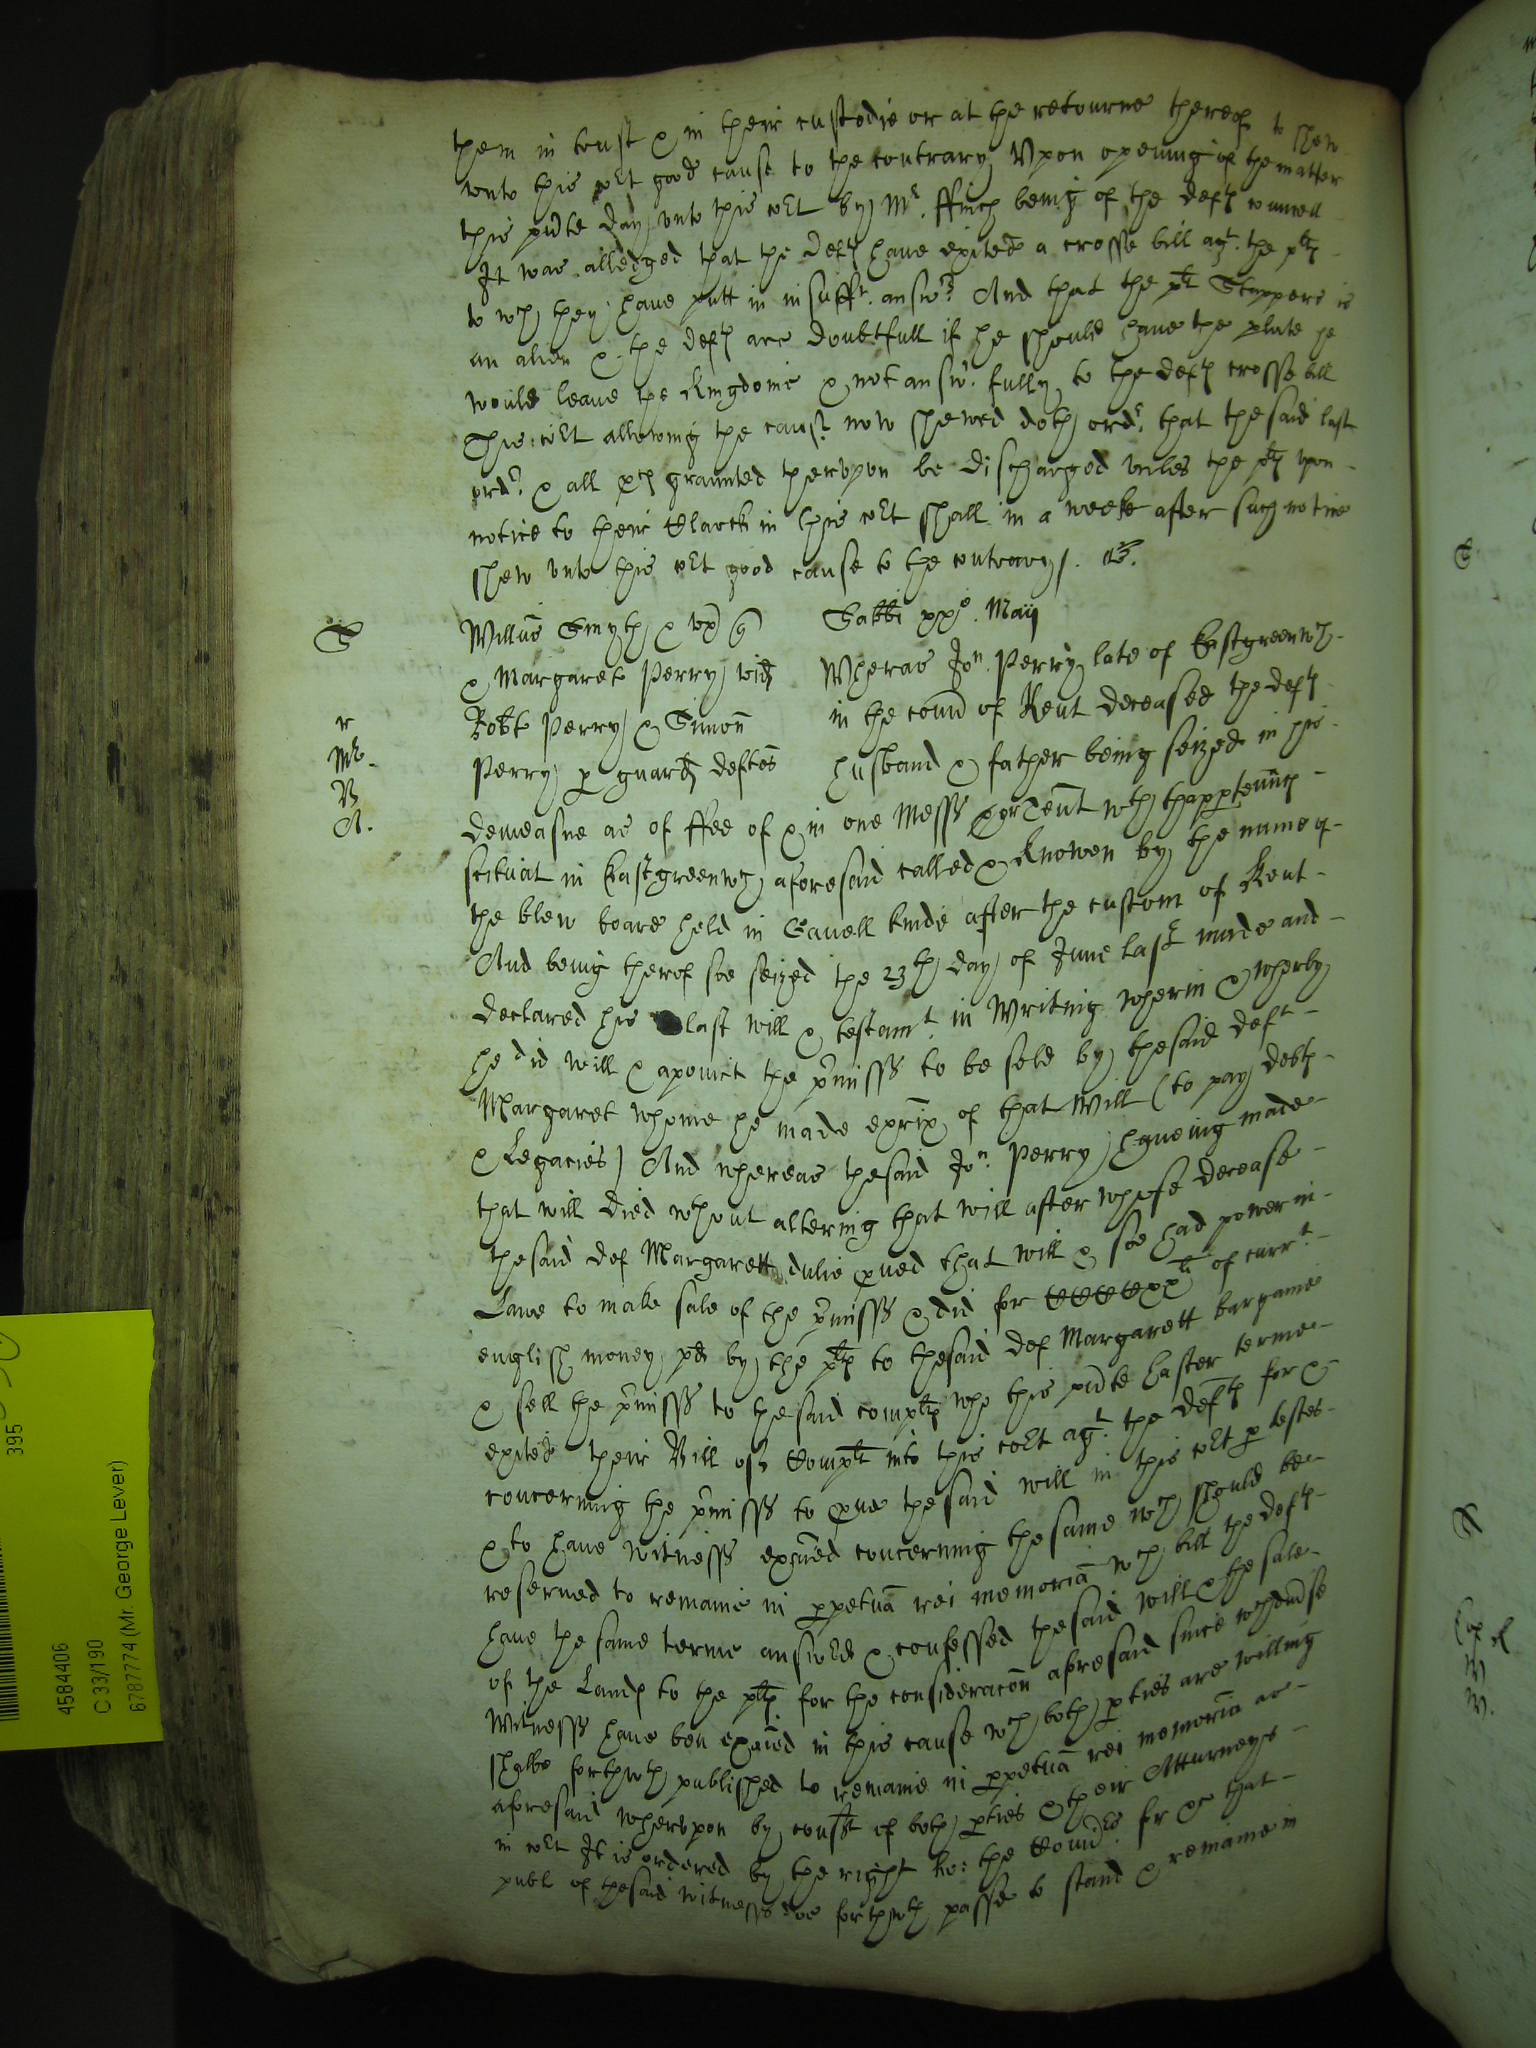 them in trust & in their custodie or at the retourne thereof to shew
unto this Cort good cause to the contrary Upon opening of the matter
this pnte day unto this cort by Mr. ffinch being of the defts councell
It was alledged that the defts have exited a crosse bill agt. the plts
to wch they have putt in insufft. answrs And that the plt Stoppers is
an alien & the defts are doubtfull if he should have the plate he
would leave the Kingdome & not answr. fully to the defts crosse bill
This cort allowing the cause now shewed doth ordr. that the said last
ordr. & all granted therupon be discharged unles the plts upon
notice to their Clarck in this cort shall in a weeke after such notice
shew unto this cort good cause to the contrary.
S
Willus Smyth & ux q
Sabbi xxjo. Maij
& Margaret Perry vid
Robt Perry & Simon
Perry p guard deftes
r
Mr.
B
A.
Wheras Jon. Perry late of Eastgreenwch
in the countie of Kent deceased the defts
husband & father being seized in his
demeasne as of ffee of & in one Mess or Tent wth thapptennces
scituat in Eastgreenwch aforesaid called & knowen by the name of
the blew boare held in Gavell kinde after the custom of Kent
And being therof soe seized the 23th day of June last made and
declared his last will & testamt. in Writing wherin & wherby
he did will & apoinct the pmisss to be sold by the said deft
Margaret whome he made exrix of that Will (to pay debts
& Legacies) And whereas the said Jon. Perry haveing made
that will died wthout altering that will after whose decease
the said def Margarett dulie pved that will & soe had power in
Lawe to make sale of the pmisss & did for CCCCxxli of currt.
english money pd by the plts to the said def Margarett bargaine
& sell the pmisss to the said complts who this pnte Easter terme
exited their Bill of Complt into this cort agt. the defts for &
concerning the pmisss to pve the said will in this cort p testes
& to have witnesss exaied concerning the same wch should be
reserved to remaine in ppetua rei memoria wch bill the defts
have the same terme answerd & confessed the said will & the sale
of the Lands to the plts for the consideracon aforesaid since wch divse
Witnesss have ben exaied in this cause wch both pties are willing
shalbe forthwth published to remaine in ppetua rei memoria as
aforesaid wherupon by consent of both pties & their Atturneys
in cort It is ordered by the right ho: the that
publ of the said witnesses doe forthwth passe to stand & remaine in
395
4584406
C 33/190
6787774 (Mr. George Lever)